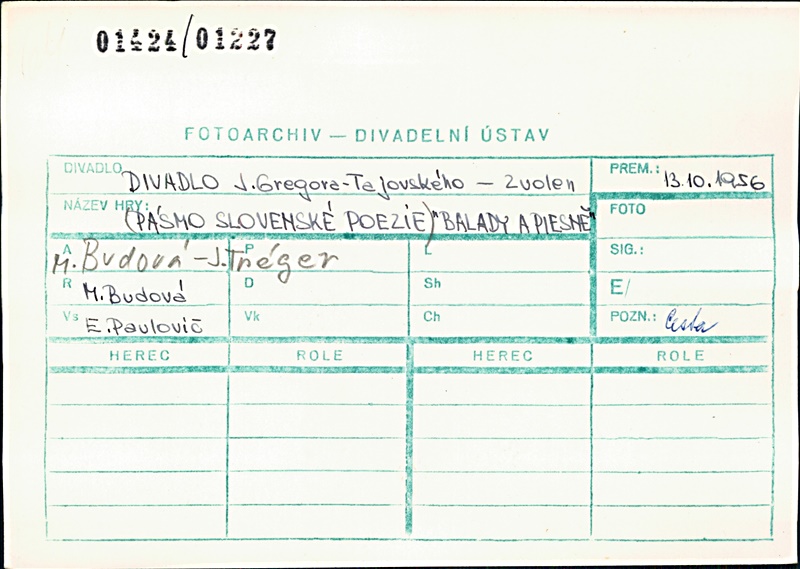 01424/01227
FOTOARCHIV — DIVADELNÍ ÚSTAV
DIVADLO DIVADLO J. Gregora-Tajovského — Zvolen PREM.: 13.10.1956
NÁZEV HRY: (PÁSMO SLOVENSKÉ POEZIE) "BALADY A PIESNĚ" FOTO
A M. Budová - J. Tréger P L SIG.:
R M. Budová D Sh E/
Vs E. Pavlovič Vk Ch POZN.: Cesta
HEREC ROLE HEREC ROLE